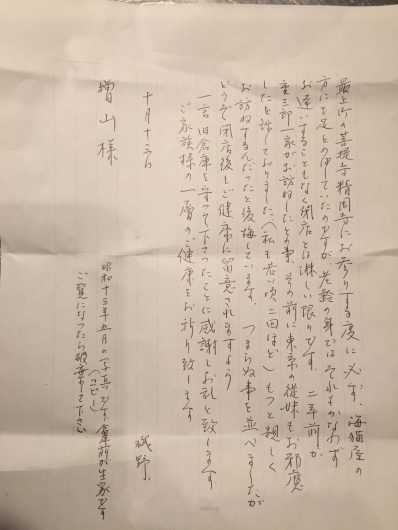 最上町の菩提寺精円寺にお参りする度に必ず、海猫屋の
方にも足をのばしていたのですが老齢の身ではそれもかなわず
お逢いすることもなく閉店とは淋しい限りです 二年前か
重三郎一家がお訪ねしたとの事、その前に東京の従妹もお邪魔
したと話しておりました（私も若い頃二回ほど）もっと親しく
お訪ねするんだったと後悔しています。つまらぬ事を並べましたが
どうぞ閉店後もご健康に留意されますよう
一言旧倉庫を守って下さったことに感謝しお礼と致します
ご家族様の一層のご健康をお祈り致します
十月十六日
磯野
増山様
昭和十三年五月の写真です 倉庫前が生家です
（コピー）
ご覧になったら破棄して下さい